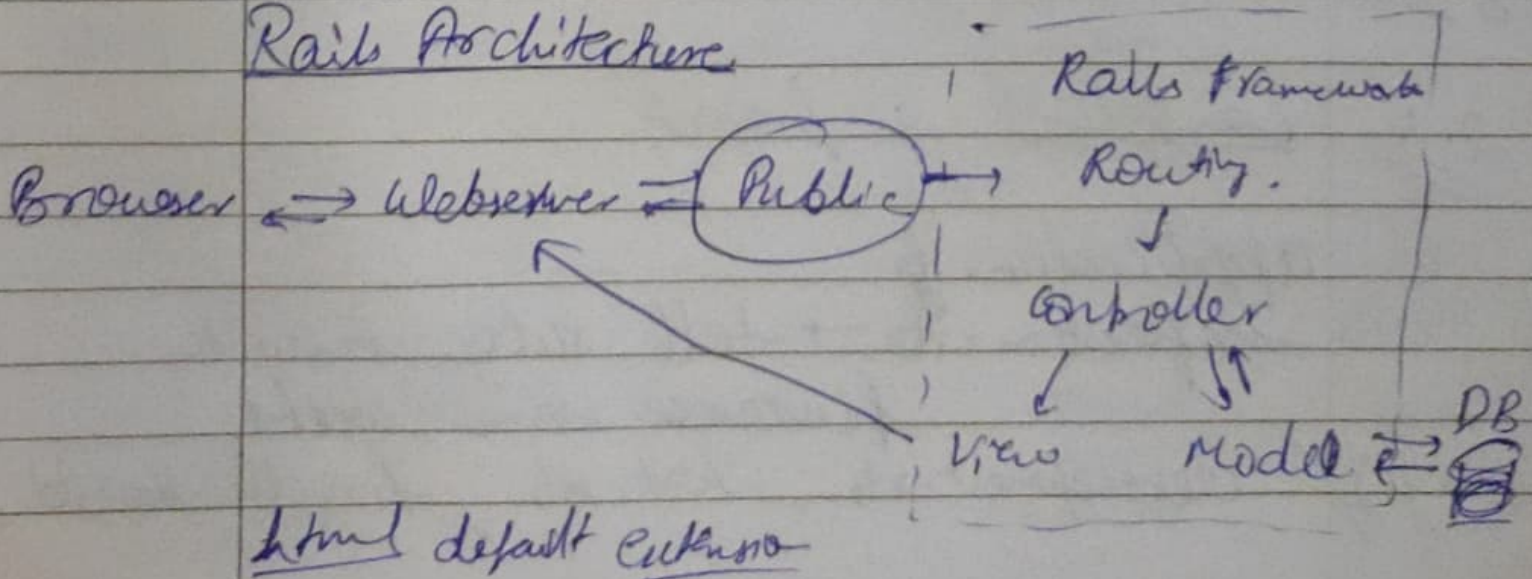 Rails Architecture
Rails Framework
Browser ⇌ Webserver ⇌ Public → Routing.
Controller
DB
View Model
html default extension